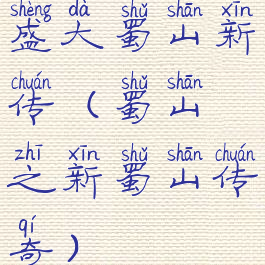 shèng dà shǔ shān xīn
盛大蜀山新
chuán shǔ shān
传(蜀山
zhī xīn shǔ shān chuán
之新蜀山传
qí
奇)